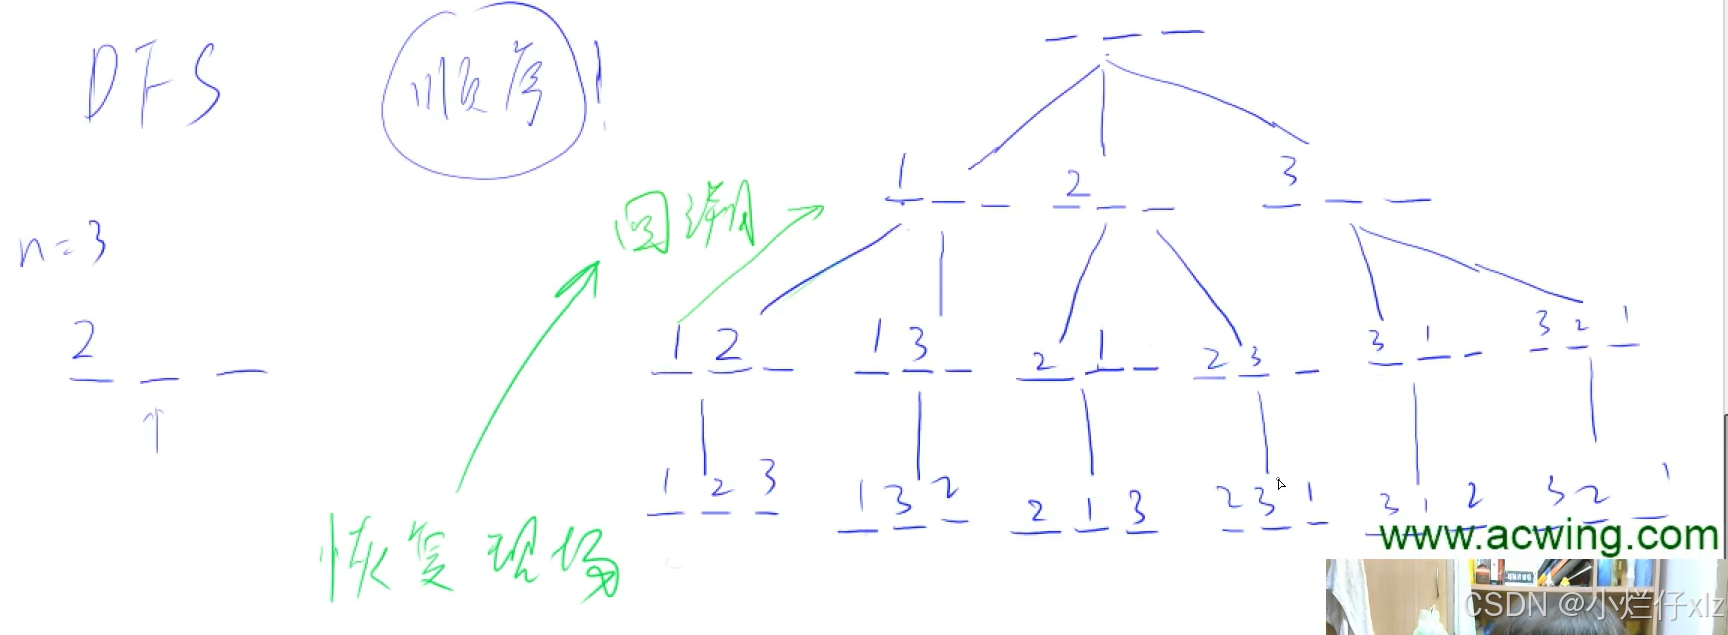 DFS 顺序!
1 2 3
回溯
n=3
2
1 2 1 3 2 1 2 3 3 1 3 2 1
1 2 3 1 3 2 2 1 3 2 3 1 3 1 2 3 2 1
恢复现场
www.acwing.com
CSDN @小烂仔xlz